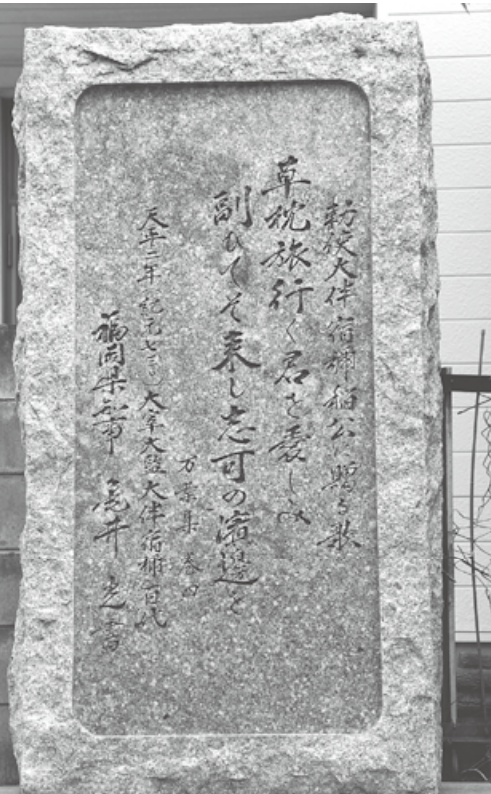 勅使大伴宿禰稲公に贈る歌
草枕旅行く君を愛しみ
副ひてそ来し志可の濱邊を
万葉集 巻四
天平二年(紀元七三〇)大宰大監大伴宿禰百代
福岡県知事 亀井 光書